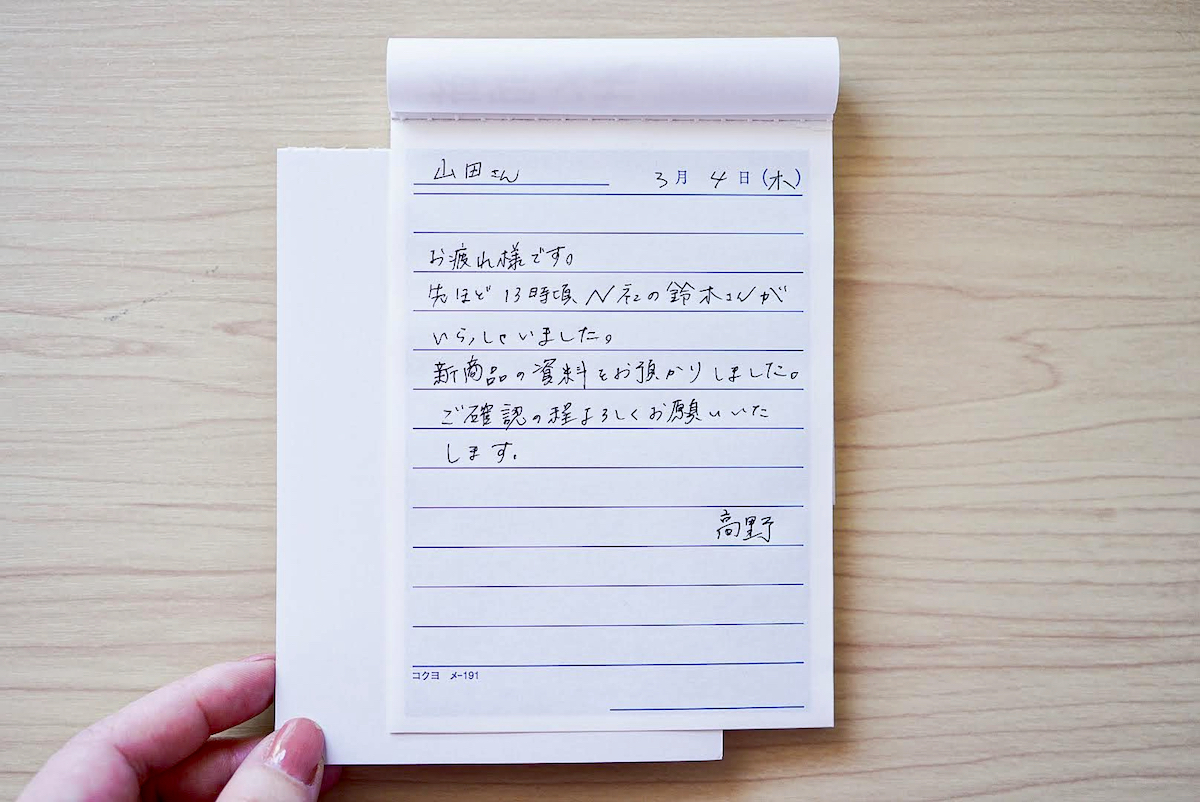 山田さん 3月 4日(水)
お疲れ様です。
先ほど13時頃N社の鈴木さんが
いらっしゃいました。
新商品の資料をお預かりしました。
ご確認の程よろしくお願いいた
します。
高野
コクヨ メ-191